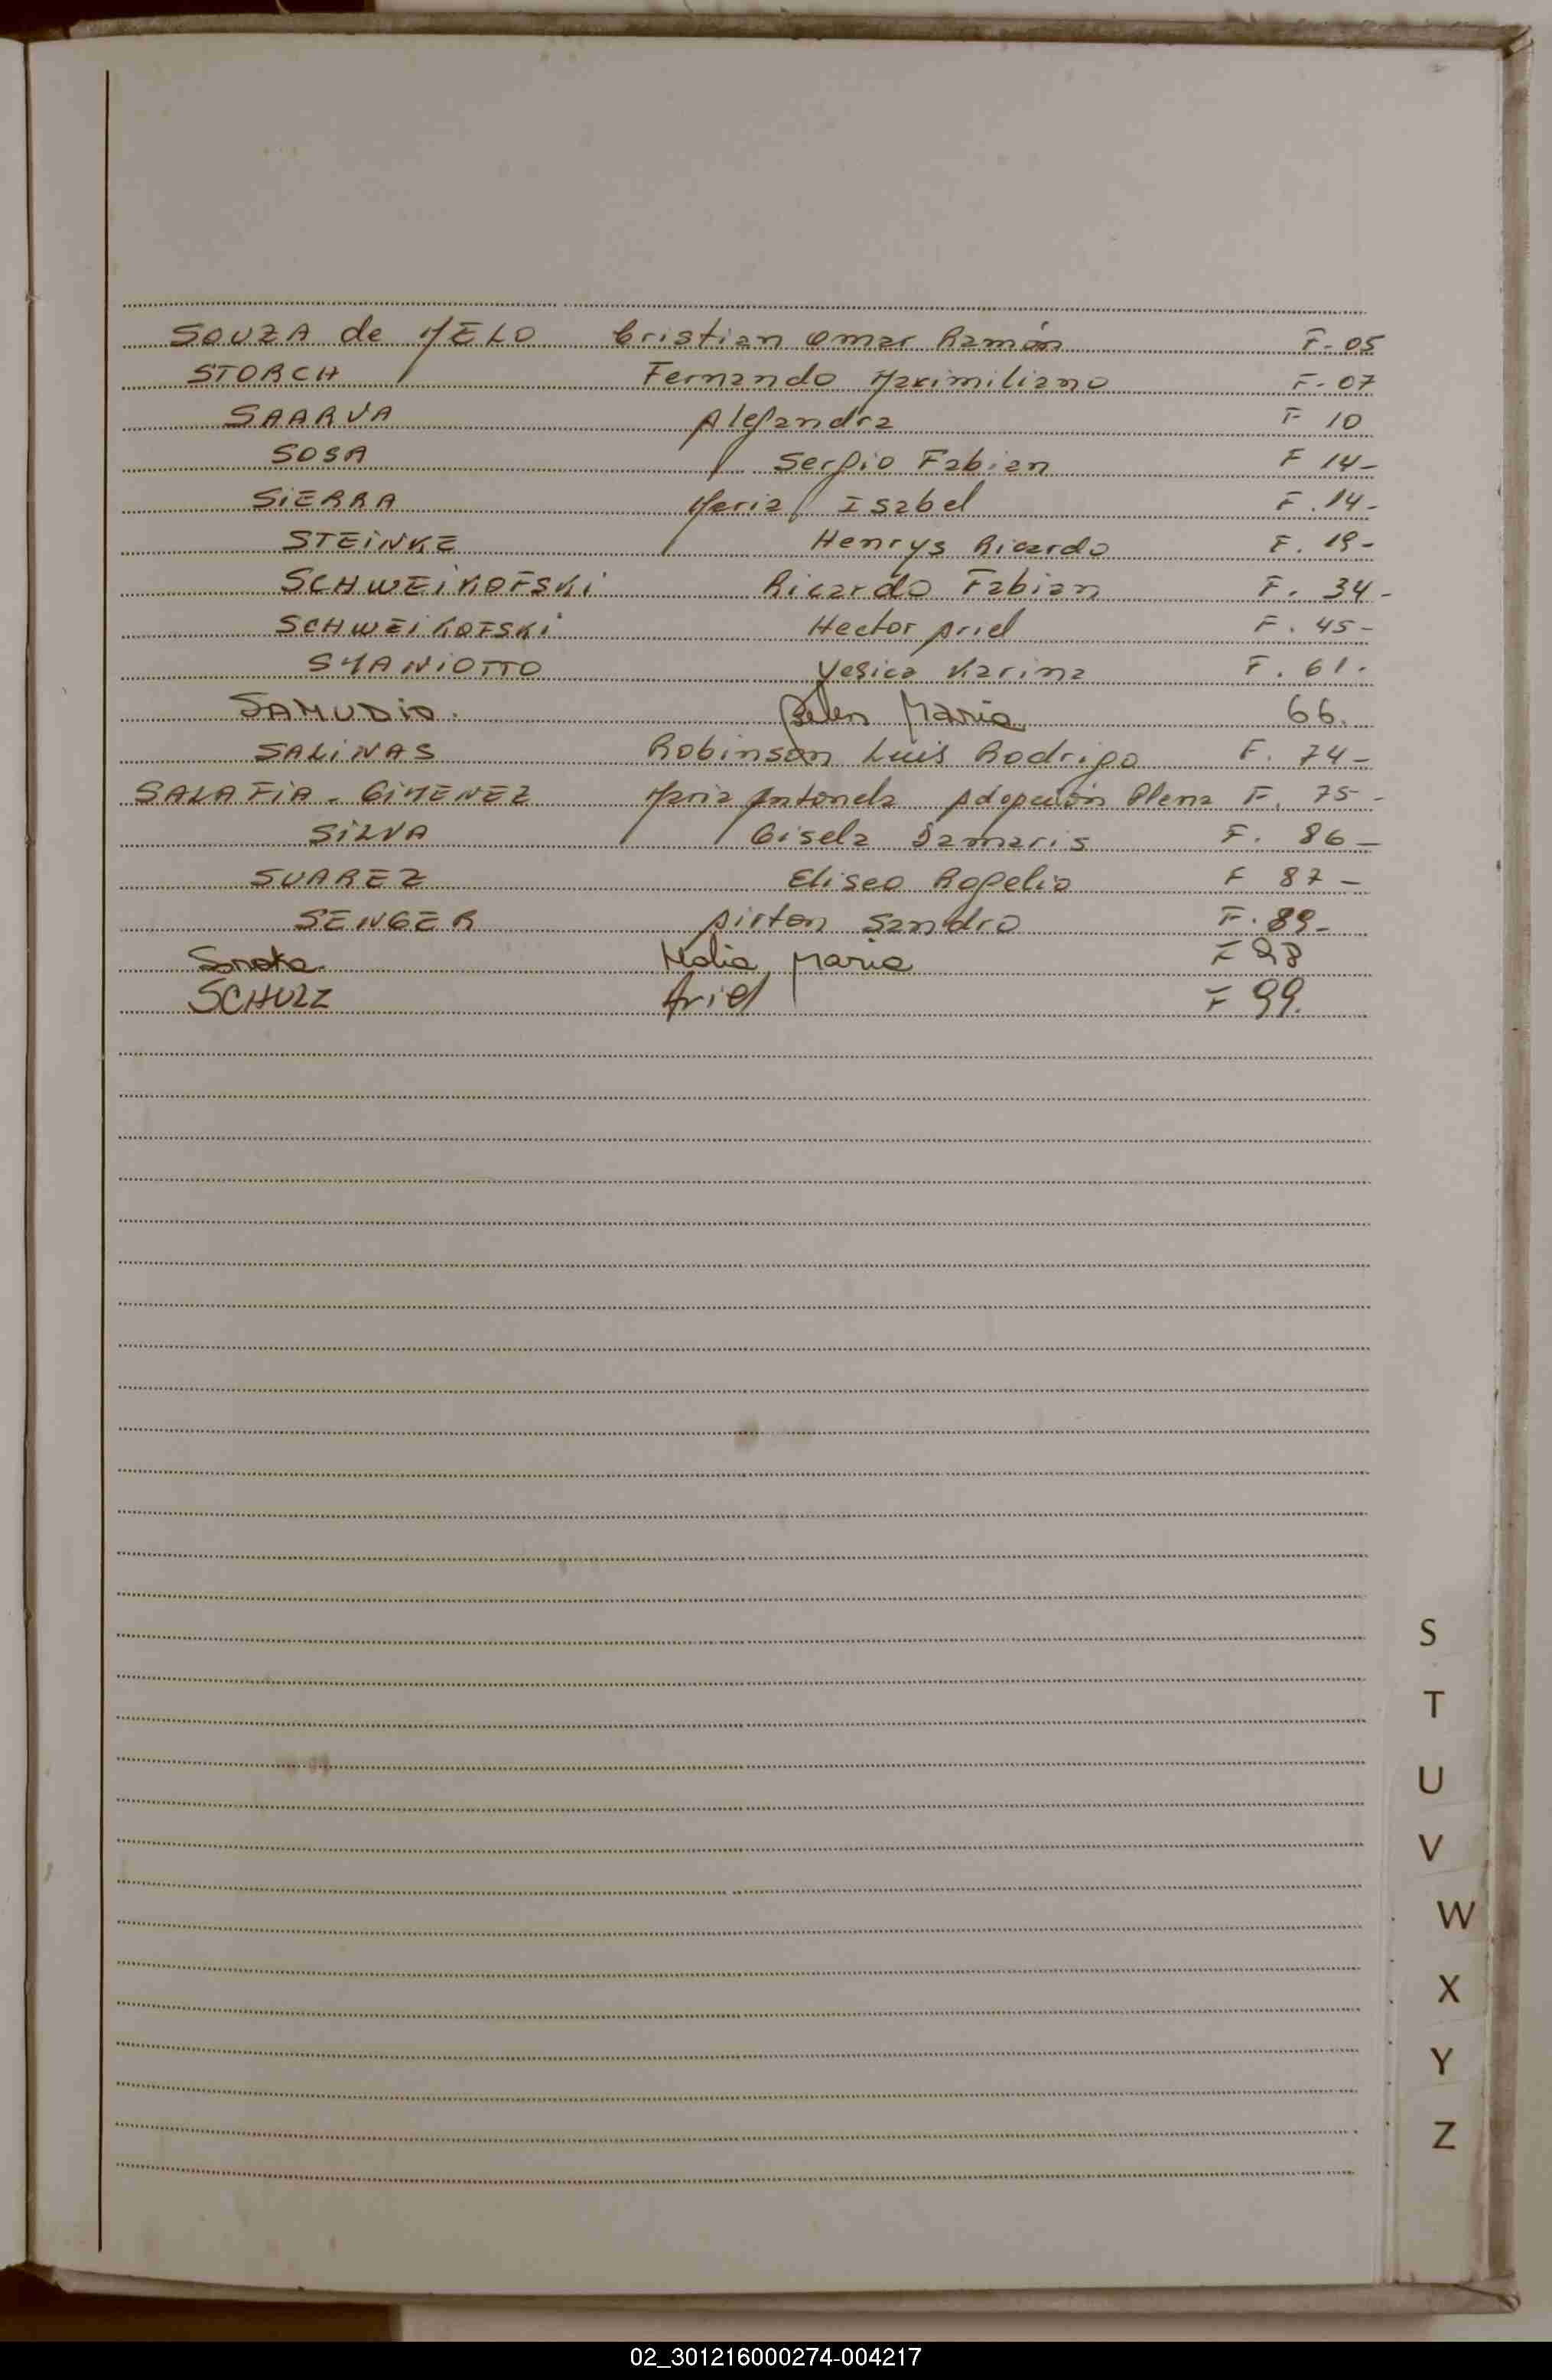 SOUZA de MELO Cristian Omar Ramón F-05
STORCH Fernando Maximiliano F-07
SAARVA Alejandra F 10
SOSA Sergio Fabian F 14-
SIERRA Maria Isabel F.14-
STEINKE Henrys Ricardo F. 19-
SCHWEIKOFSKI Ricardo Fabian F. 34-
SCHWEIKOFSKI Hector Ariel F. 45-
SMANIOTTO Yesica Karina F. 61-
SAMUDIO. Belen Maria 66.
SALINAS Robinson Luis Rodrigo F. 74-
SALAFIA - GIMENEZ Maria Antonela Adopción Plena F. 75-
SILVA Gisela Damaris F. 86-
SUAREZ Eliseo Rogelio F 87-
SENGER Airton Sandro F. 89-
Maria F 98
SCHULZ Ariel F 99.
S
T
U
V
W
X
Y
Z
02_301216000274-004217